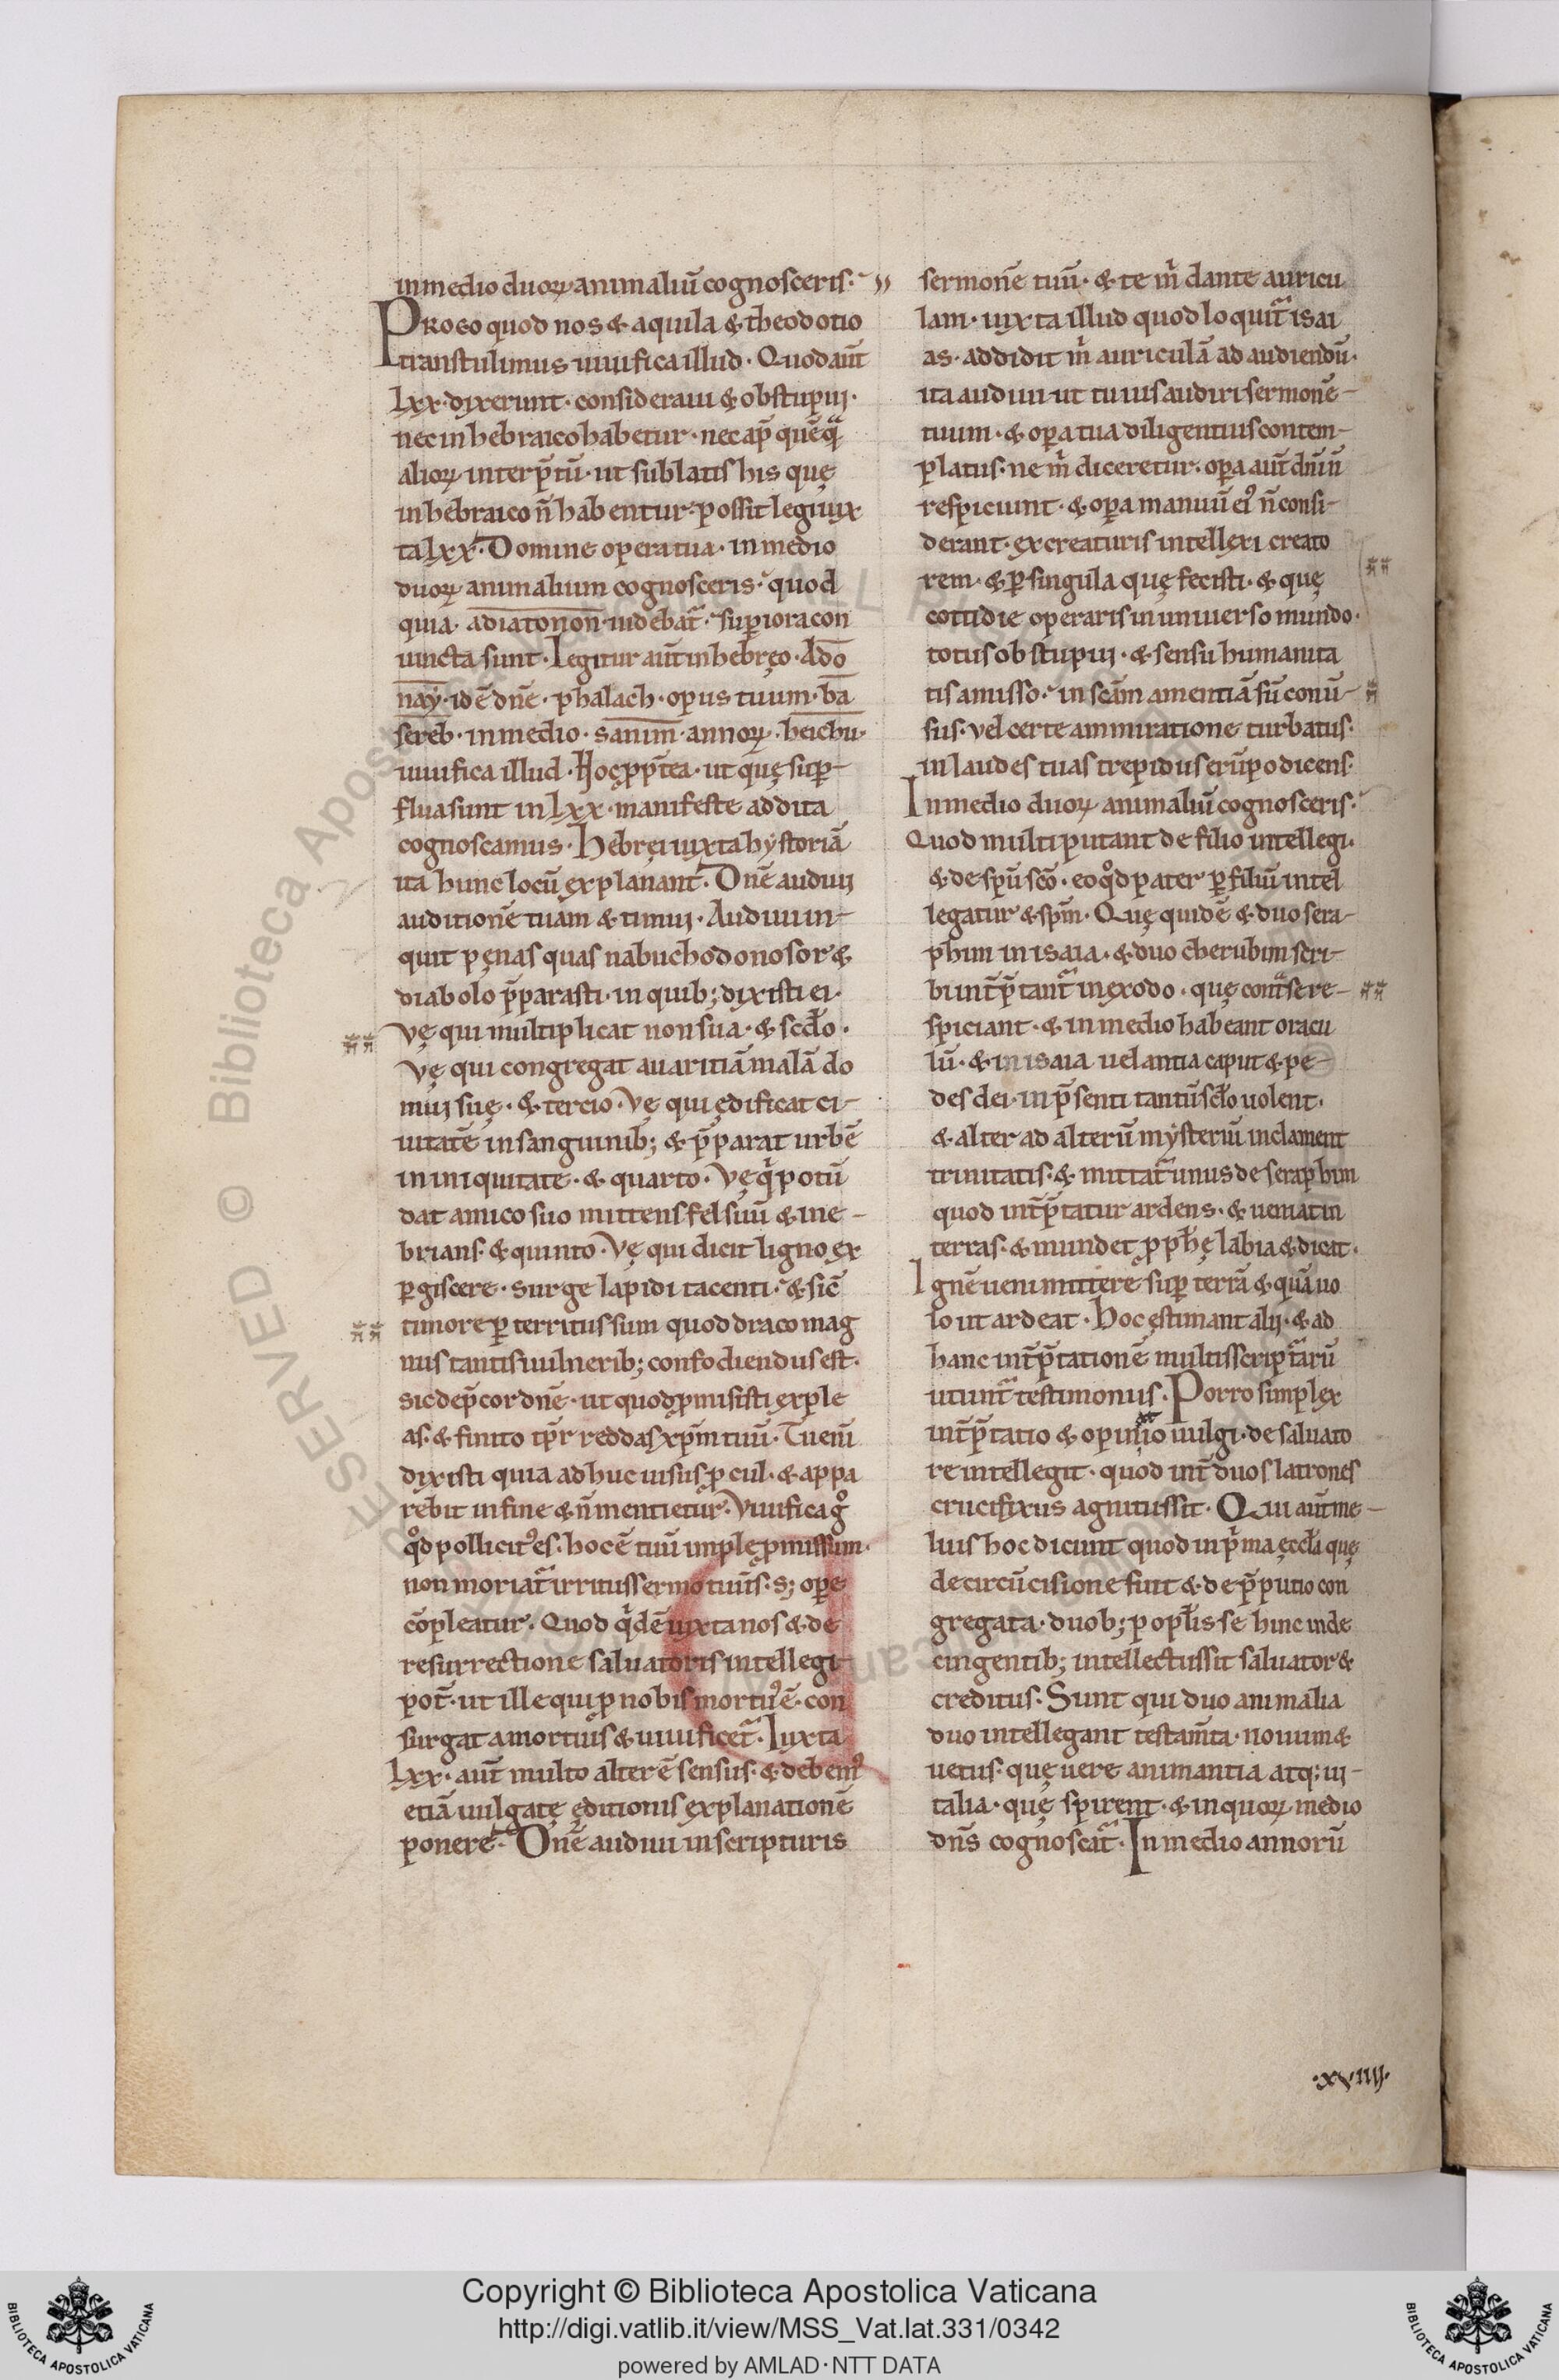 inmedio duoꝝ animaliũ cognosceris. 〃
PROEO quod nos & aquila & theodotio
transtulimus uiuifica illud. Quod aut̃
lxx. dixerunt. consideraui & obstupui.
nec in hebraico habetur. nec ap̃ quẽqᷓ
alioꝝ interp̃tũ. ut sublatis his quę
in hebraico ñ habentur. possit legi iux
ta lxx. Domine opera tua. in medio
duoꝝ animalium cognosceris. quod
quia. adiatonon. uidebat᷑. supiora con
iuncta sunt. Legitur aut̃ in hebręo. Ado
nay. id ẽ dñe. phalach. opus tuum. ba
sereb. in medio. sanim. annoꝝ. heichu.
uiuifica illud. Hoc ꝓpt̃ea. ut quę suꝑ
flua sunt in lxx. manifeste addita
cognoscamus. Hebręi iuxta hystoriã
ita hunc locũ explanant. Dñe audiui
auditionẽ tuam & timui. Audiui in
quit pęnas quas nabuchodonosor &
diabolo p̃parasti. in quib; dixisti ei.
Vę qui multiplicat non sua. & scđo.
Vę qui congregat auaritiã malã do
mui suę. & tercio. Vę qui ędificat ci
uitatẽ in sanguinib; & p̃parat urbẽ
in iniquitate. & quarto. Vę qͥ potũ
dat amico suo mittens fel suũ & ine
brians. & quinto. Vę qui dicit ligno ex
ꝑgiscere. surge lapidi tacenti. & sic̃
timore ꝑterritus sum quod draco mag
nus tantis uulnerib; confodiendus est.
sic dep̃cor dñe. ut quod ꝓmisisti exple
as. & finito tp̃r reddas xp̃m tuũ. Tu eni͂
dixisti quia adhuc uisus ꝓcul. & appa
rebit in fine & ñ mentietur. Viuifica gͦ
qͦd pollicitꝰ es. hoc ẽ tuũ imple ꝓmissum.
non moriat᷑ irritus sermo tuus. s; oꝑe
cõpleatur. Quod qͥdẽ iuxta nos & de
resurrectione saluatoris intellegi
pot̃. ut ille qui ꝓ nobis mortuꝰ ẽ. con
surgat a mortuis & uiuificet᷑. Iuxta
lxx. aut̃ multo alter ẽ sensus. & debemꝰ
etiã uulgatę ęditionis explanationẽ
ponere. Dñe audiui in scripturis
sermonẽ tuũ. & te m̃ dante auricu
lam. iuxta illud quod loquit᷑ isai
as. addidit m̃ auriculã ad audiendũ.
ita audiui ut tuus audiri sermonẽ
tuum. & oꝑa tua diligentius contem
platus. ne m̃ diceretur. oꝑa aut̃ dñi ñ
respiciunt. & oꝑa manuũ eiꝰ ñ consi
derant. ex creaturis intellexi creato
rem. & ꝑ singula quę fecisti. & quę
cottidie operaris in uniuerso mundo.
totus obstupui. & sensu humanita
tis amisso. in scãm amentiã sũ conũ
sus. vel certe ammiratione turbatus.
in laudes tuas trepidus erũpo dicens.
In medio duoꝝ animaliũ cognosceris.
Quod multi putant de filio intellegi.
& de spũ scõ. eo qͦd pater ꝑ filiũ intel
legatur & spm̃. Quę quidẽ & duo sera
phim in isaia. & duo cherubim scri
bi int̃p̃tant᷑ in exodo. quę contᷓ se re
spiciant. & in medio habeant oracu
lũ. & in isaia uelantia caput & pe
des dei. in p̃senti tantũ scłо uolent.
& alter ad alterũ mysteriũ inclament
trinitatis. & mittat᷑ unus de seraphim
quod int̃p̃tatur ardens. & ueniat in
terras. & mundet ꝓph̃ę labia & dicat.
Ignẽ ueni mittere suꝑ terrã & quã uo
lo ut ardeat. Hoc ęstimant alij. & ad
hanc int̃p̃tationẽ multis script᷑arũ
utunt᷑ testimoniis. Porro simplex
int̃p̃tatio & opinio uulgi. de saluato
re intellegit. quod int̃ duos latrones
crucifixus agnitus sit. Qui aut̃ me
lius hoc dicunt quod in pͥma ęccłia quę
de circũcisione fuit & de p̃putio con
gregata. duob; popłis se hinc inde
cingentib; intellectus sit saluator &
creditus. Sunt qui duo animalia
duo intellegant testam̃ta. nouum &
uetus. quę uere animantia atq; ui
talia. quę spirent. & in quoꝝ medio
dñs cognoscat᷑. In medio annorũ
.xviiij.
Copyright © Biblioteca Apostolica Vaticana
http://digi.vatlib.it/view/MSS_Vat.lat.331/0342
powered by AMLAD·NTT DATA
BIBLIOTECA APOSTOLICA VATICANA
BIBLIOTECA APOSTOLICA VATICANA